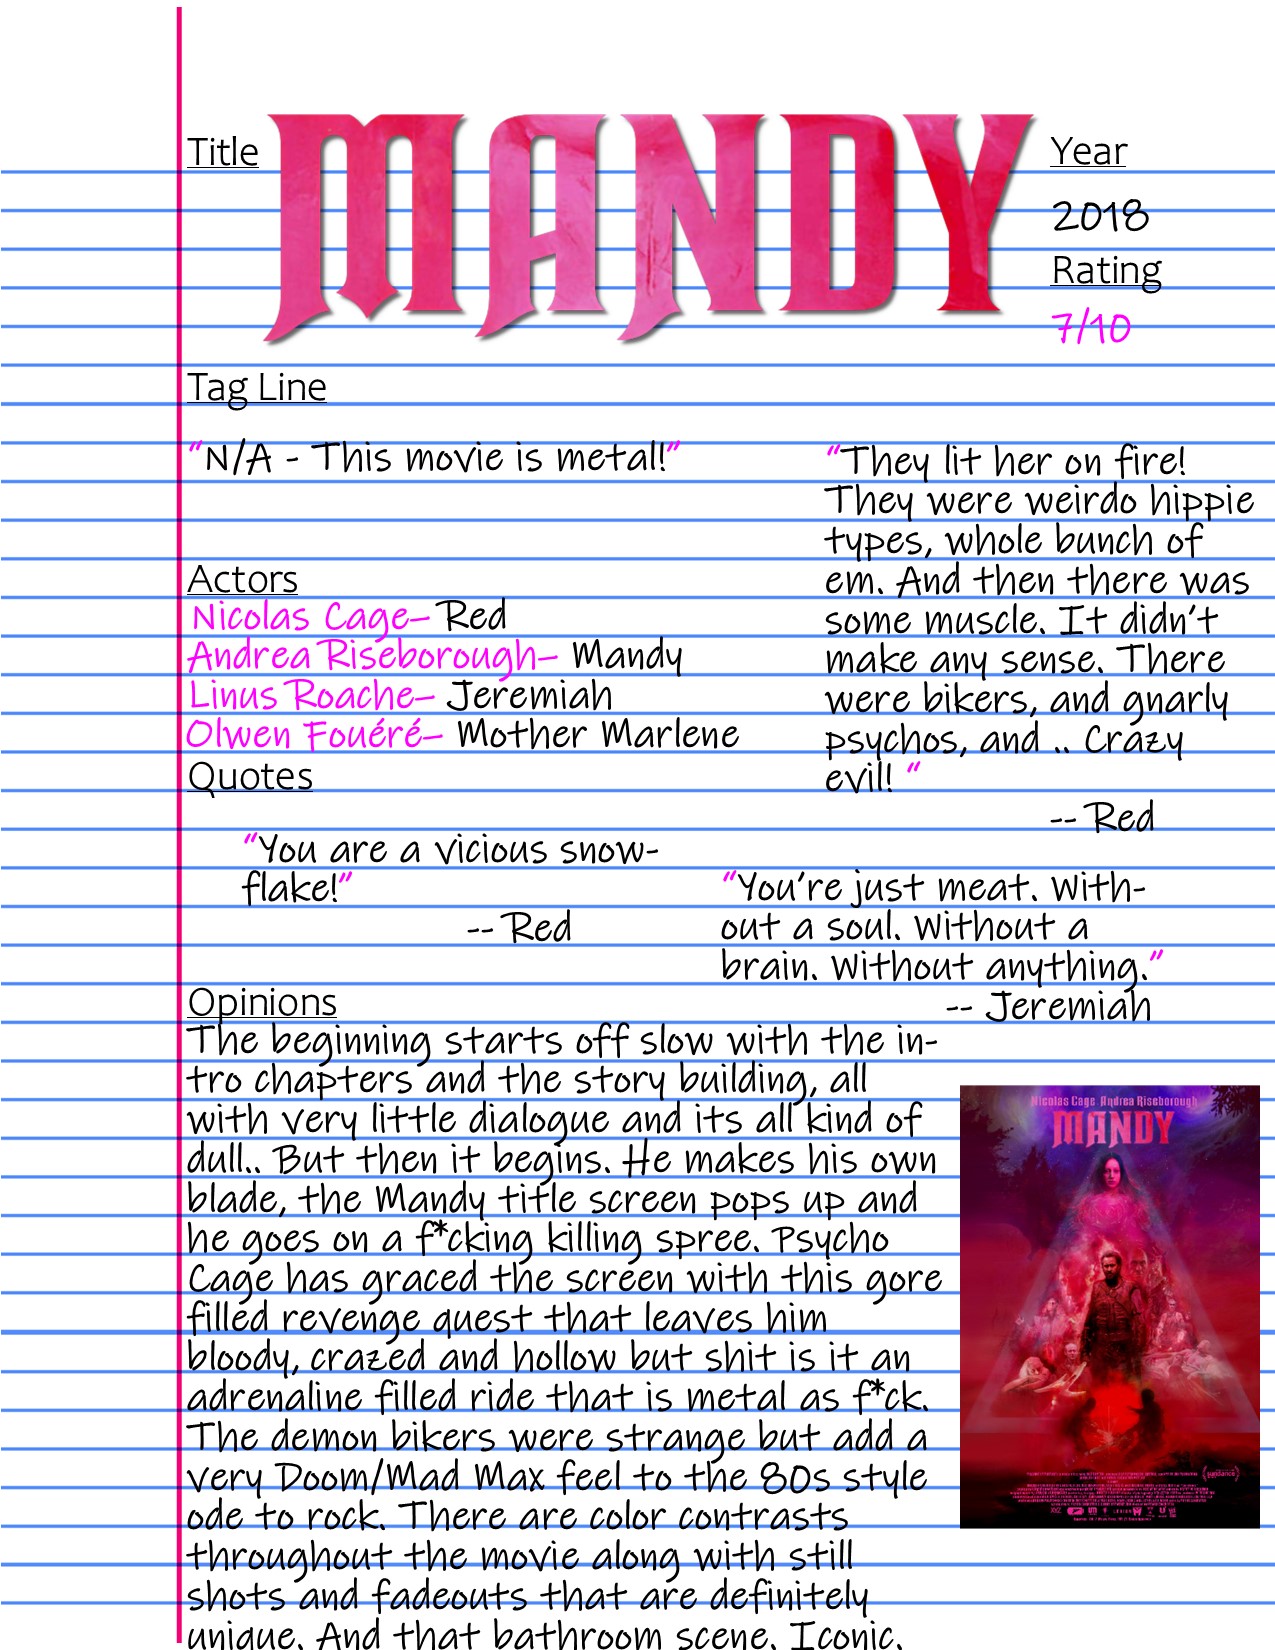 Title
MANDY
Year
2018
Rating
7/10
Tag Line
"N/A - This movie is metal!"
Actors
Nicolas Cage– Red
Andrea Riseborough– Mandy
Linus Roache– Jeremiah
Olwen Fouéré– Mother Marlene
Quotes
"They lit her on fire!
They were weirdo hippie
types, whole bunch of
em. And then there was
some muscle. It didn't
make any sense. There
were bikers, and gnarly
psychos, and .. Crazy
evil! "
-- Red
"You are a vicious snow-
flake!"
-- Red
"You're just meat. With-
out a soul. Without a
brain. Without anything."
-- Jeremiah
Opinions
The beginning starts off slow with the in-
tro chapters and the story building, all
with very little dialogue and its all kind of
dull.. But then it begins. He makes his own
blade, the Mandy title screen pops up and
he goes on a f*cking killing spree. Psycho
Cage has graced the screen with this gore
filled revenge quest that leaves him
bloody, crazed and hollow but shit is it an
adrenaline filled ride that is metal as f*ck.
The demon bikers were strange but add a
very Doom/Mad Max feel to the 80s style
ode to rock. There are color contrasts
throughout the movie along with still
shots and fadeouts that are definitely
unique. And that bathroom scene. Iconic.
Nicolas Cage Andrea Riseborough
MANDY
sundance